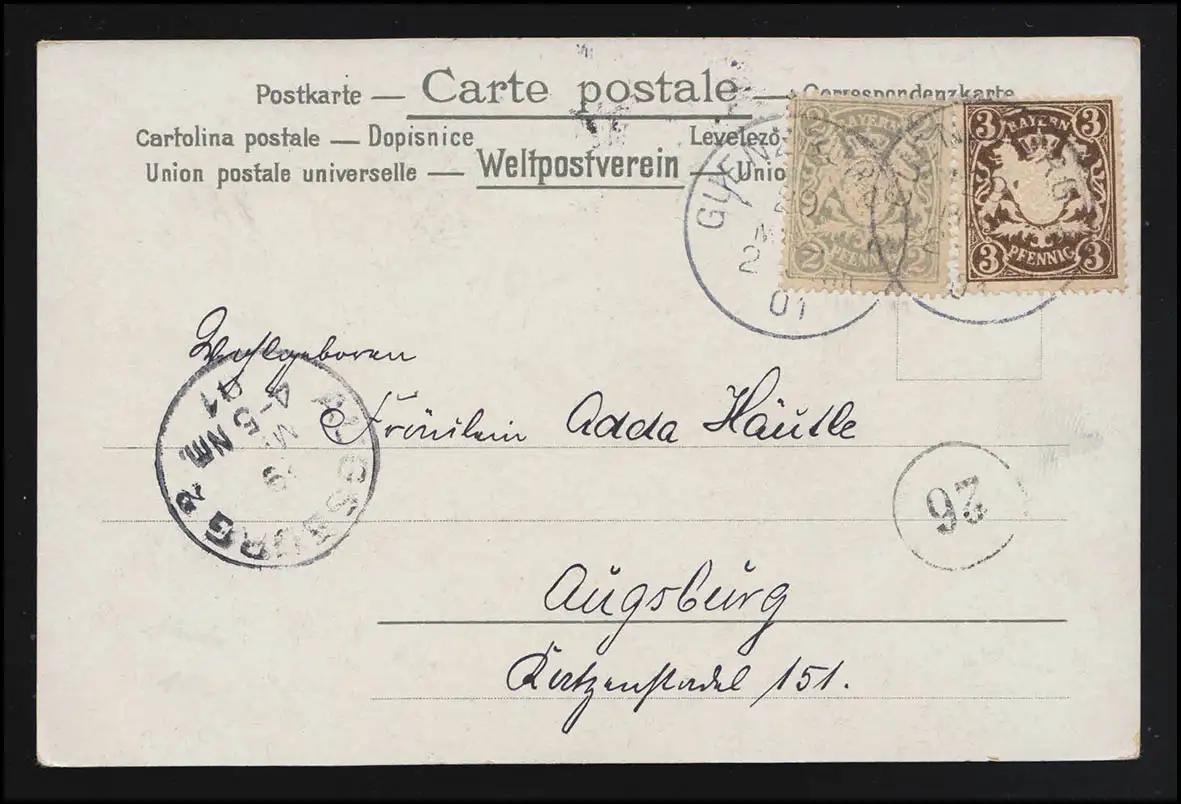 Postkarte — Carte postale — Correspondenzkarte
Cartolina postale — Dopisnice Levelező
Union postale universelle — Weltpostverein — Unio
2 BAYERN 2 PFENNIG 2
3 BAYERN 3
3 PFENNIG 3
GUENZBURG
2
01
Wohlgeboren
Fräulein Adda Häutle
AUGSBURG 2
9 M
4-5 NM.
01
26
Augsburg
Katzenstadel 151.